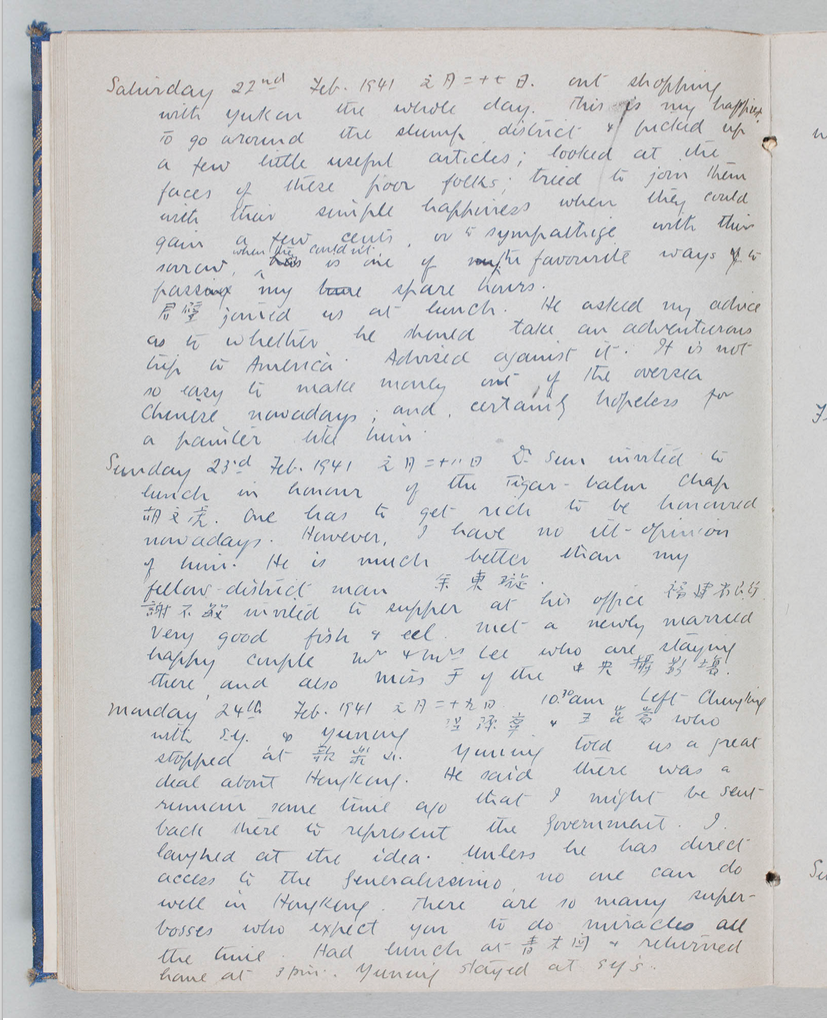 Saturday 22nd Feb. 1941 正月=十七日. out shopping
with Yukon the whole day. This is my happiest
To go around the slump district & picked up
a few little useful articles; looked at the
faces of these poor folks; tried to join them
with their simple happiness when they could
gain a few cents, or to sympathize with their
sorrow, when they couldn't, is one of my favourite ways to
passing my spare hours.
joined us at lunch. He asked my advice
as to whether he should take an adventurous
trip to America. Advised against it. It is not
so easy to make money out of the oversea
Chinese nowadays; and, certainly hopeless for
a painter like him.
Sunday 23rd Feb. 1941 正月=十八日 Dr. Sun invited to
lunch in honour of the Tigar-balm chap
胡文虎. One has to get rich to be honoured
nowadays. However, I have no ill-opinion
of him. He is much better than my
fellow-district man 余東璇.
謝不敏 invited to supper at his office 福建省公.
Very good fish & eel. Met a newly married
happy couple Mr & Mrs Lee who are staying
there, and also Miss of the 中央攝影場.
Monday 24th Feb. 1941 正月=十九日 10.30am Left Chungking
with S.Y. & Yuning & who
stopped at 歌樂山. Yuning told us a great
deal about Hongkong. He said there was a
rumour some time ago that I might be sent
back there to represent the Government. I
laughed at the idea. Unless he has direct
access to the Generalissimo, no one can do
well in Hongkong. There are so many super-
bosses who expect you to do miracles all
the time. Had lunch at 青木関 & returned
home at 3 pm. Yuning stayed at SY's.